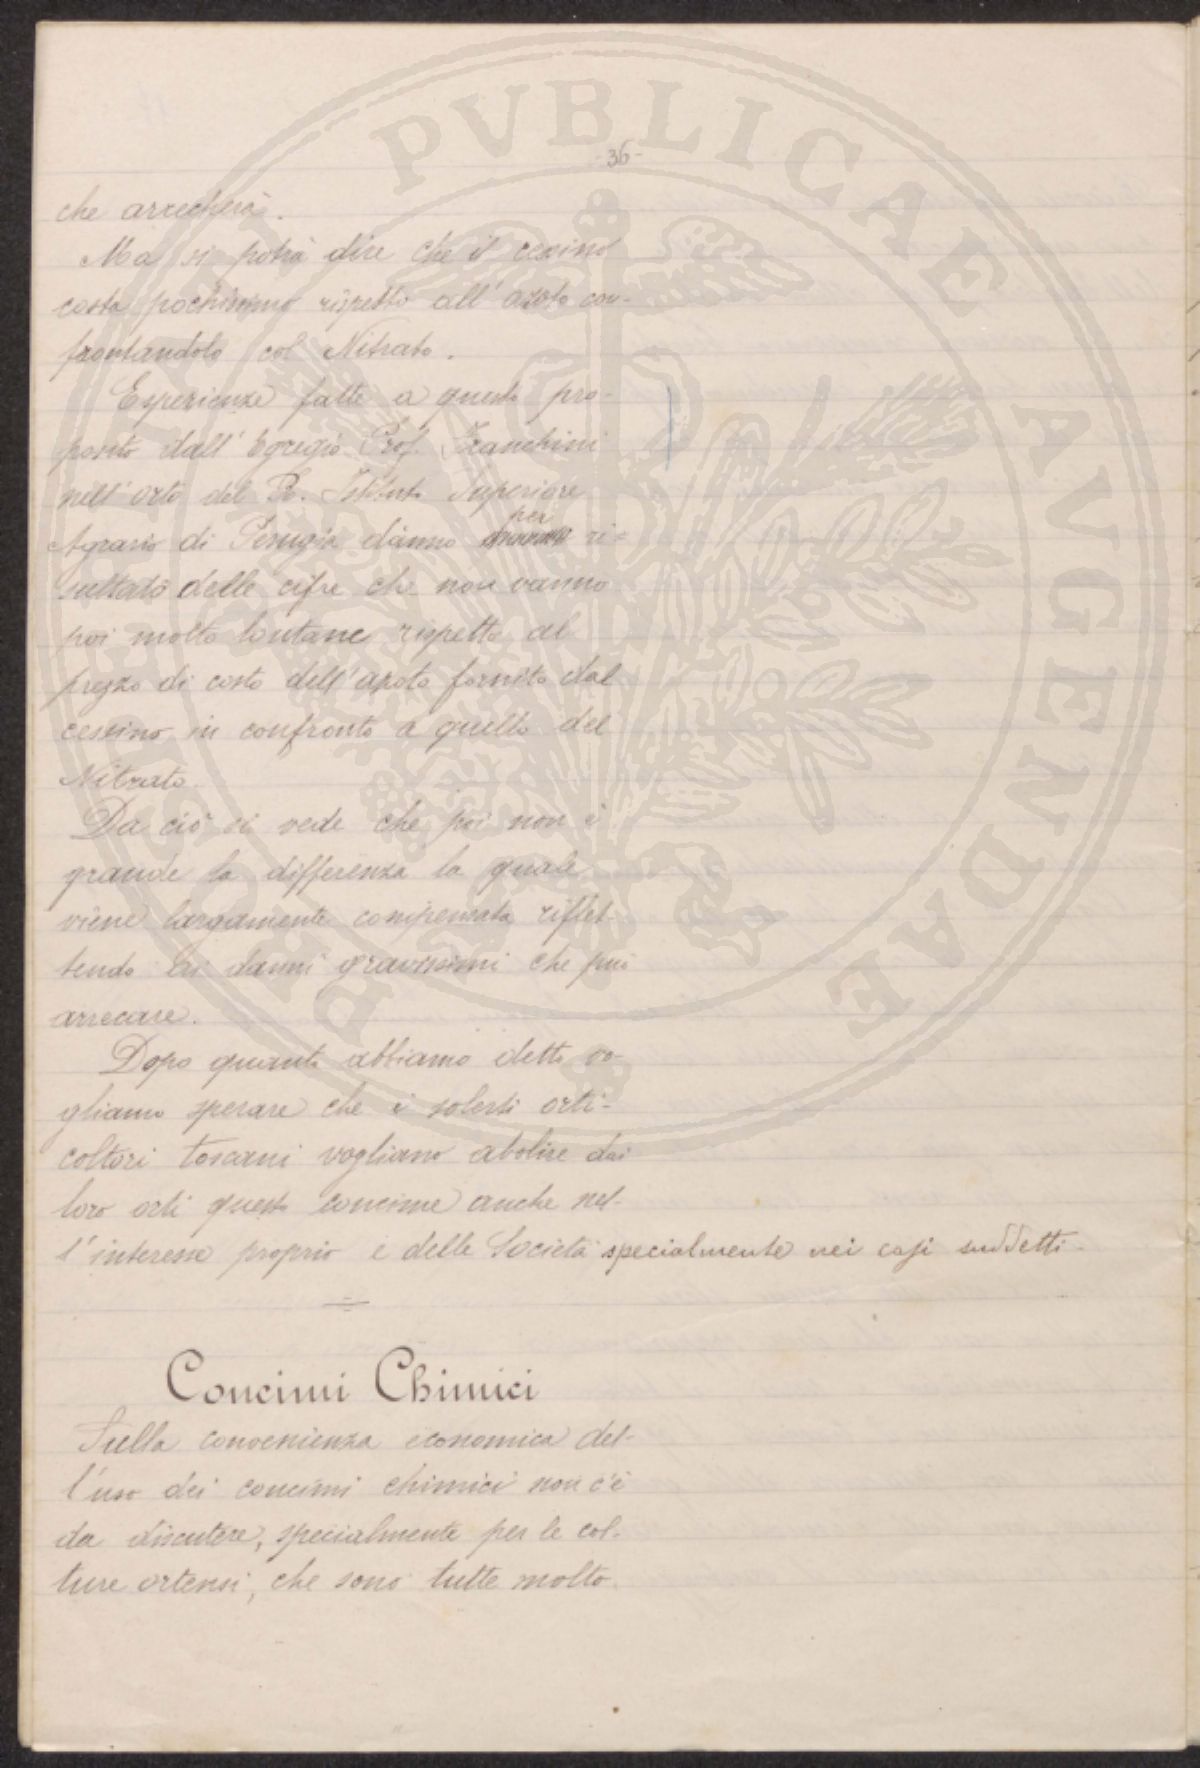 -36-
che arrecherà.
Ma si potrà dire che il cessino
costa pochissimo rispetto all'azoto con-
frontandolo col Nitrato.
Esperienze fatte a questo pro-
posito dall'Egregio Prof. Franchini
nell'orto del R. Istituto Superiore
Agrario di Perugia danno per ri-
sultato delle cifre che non vanno
poi molto lontane rispetto al
prezzo di costo dell'azoto fornito dal
cessino in confronto a quello del
Nitrato.
Da ciò si vede che poi non è
grande la differenza la quale
viene largamente compensata riflet-
tendo ai danni gravissimi che può
arrecare.
Dopo quanto abbiamo detto vo-
gliamo sperare che i solerti orti-
coltori toscani vogliano abolire dai
loro orti questo concime anche nel-
l'interesse proprio e della Società specialmente nei casi suddetti.
Concimi Chimici
Sulla convenienza economica del-
l'uso dei concimi chimici non c'è
da discutere, specialmente per le col-
ture ortensi, che sono tutte molto
PVBLICAE AVGENDAE